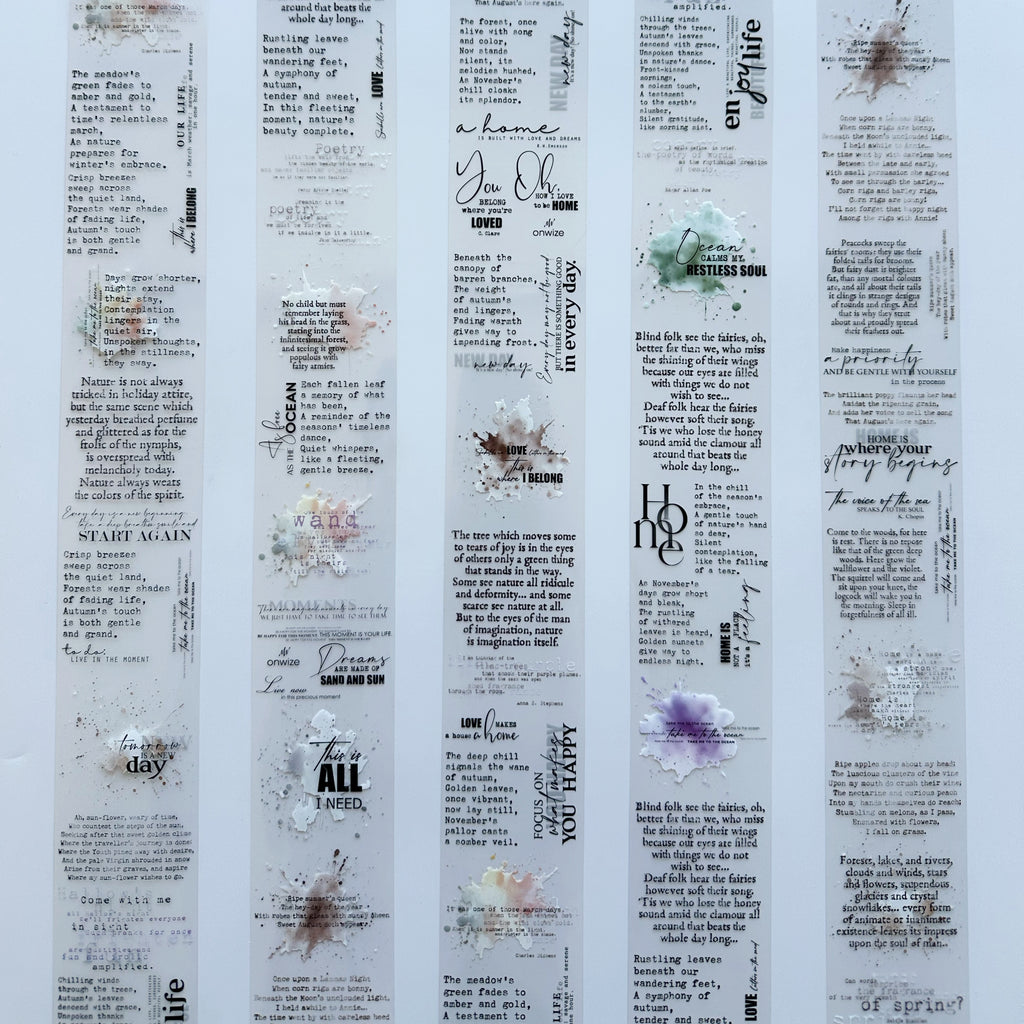 It was one of those March days.
Charles Dickens
The meadow's
green fades to
amber and gold,
A testament to
time's relentless
march,
As nature
prepares for
winter's embrace.
OUR LIFE
is March weather: savage and serene
in one hour.
Crisp breezes
sweep across
the quiet land,
Forests wear shades
of fading life,
Autumn's touch
is both gentle
and grand.
This is
where I BELONG
Days grow shorter,
nights extend
their stay,
Contemplation
lingers in the
quiet air,
Unspoken thoughts,
in the stillness,
they sway.
take me to the ocean
Nature is not always
tricked in holiday attire,
but the same scene which
yesterday breathed perfume
and glittered as for the
frolic of the nymphs,
is overspread with
melancholy today.
Nature always wears
the colors of the spirit.
Every day is a new beginning
take a deep breath, smile and
START AGAIN
Crisp breezes
sweep across
the quiet land,
Forests wear shades
of fading life,
Autumn's touch
is both gentle
and grand.
take me to the ocean
to do:
LIVE IN THE MOMENT
tomorrow
IS A NEW
day
Ah, sun-flower, weary of time,
Who countest the steps of the sun,
Seeking after that sweet golden clime
Where the traveller's journey is done;
Where the Youth pines away with desire,
And the pale Virgin shrouded in snow
Arise from their graves, and aspire
Where my sun-flower wishes to go.
Come with me
in sight
amplified.
Chilling winds
through the trees,
Autumn's leaves
descend with grace,
Unspoken thanks
life
around that beats the
whole day long...
Rustling leaves
beneath our
wandering feet,
A symphony of
autumn,
tender and sweet,
In this fleeting
moment, nature's
beauty complete.
LOVE
Poetry
poetry
No child but must
remember laying
his head in the grass,
staring into the
infinitesimal forest,
and seeing it grow
populous with
fairy armies.
As free
AS THE OCEAN
Each fallen leaf
a memory of what
has been,
A reminder of the
seasons' timeless
dance,
Quiet whispers,
like a fleeting,
gentle breeze.
wand
MOMENTS
WE JUST HAVE TO TAKE TIME TO SEE THEM
BE HAPPY FOR THIS MOMENT. THIS MOMENT IS YOUR LIFE.
onwize
Dreams
ARE MADE OF
SAND AND SUN
Live now
in this precious moment
This is
ALL
I NEED.
Ripe summer's queen
The hey-day of the year
With robes that gleam with sunny sheen
Sweet August doth appear.
Once upon a Lammas Night
When corn rigs are bonny,
Beneath the Moon's unclouded light,
I held awhile to Annie...
The time went by with careless heed
That August's here again.
The forest, once
alive with song
and color,
Now stands
silent, its
melodies hushed,
As November's
chill cloaks
its splendor.
NEW DAY
new day
a home
IS BUILT WITH LOVE AND DREAMS
R.W. EMERSON
You
BELONG
where you're
LOVED
C. Clare
Oh,
HOW I LOVE
to be HOME
onwize
Beneath the
canopy of
barren branches,
The weight
of autumn's
end lingers,
Fading warmth
gives way to
impending frost.
Every day may not be good
BUT THERE IS SOMETHING GOOD
in every day.
NEW DAY
new day
LOVE
This is
where I BELONG
The tree which moves some
to tears of joy is in the eyes
of others only a green thing
that stands in the way.
Some see nature all ridicule
and deformity... and some
scarce see nature at all.
But to the eyes of the man
of imagination, nature
is imagination itself.
lilac-trees
that shook their purple plumes,
through the room.
Anna S. Stephens
LOVE MAKES
a house a home
The deep chill
signals the wane
of autumn,
Golden leaves,
once vibrant,
now lay still,
November's
pallor casts
a somber veil.
FOCUS ON
what makes
YOU HAPPY
It was one of those March days.
Charles Dickens
The meadow's
green fades to
amber and gold,
A testament to
LIFE
amplified.
Chilling winds
through the trees,
Autumn's leaves
descend with grace,
Unspoken thanks
in nature's dance.
Frost-kissed
mornings,
a solemn trace,
A testament
to the earth's
slumber,
Silent gratitude,
like morning mist.
enjoy life
the poetry of words
as the rhythmical creation
of beauty.
Edgar Allan Poe
Ocean
CALMS MY
RESTLESS SOUL
Blind folk see the fairies, oh,
better far than we, who miss
the shining of their wings
because our eyes are filled
with things we do not
wish to see...
Deaf folk hear the fairies
however soft their song.
'Tis we who lose the honey
sound amid the clamour all
around that beats the
whole day long...
Home
In the chill
of the season's
embrace,
A gentle touch
of nature's hand
so dear,
Silent
contemplation,
like the falling
of a tear.
As November's
days grow short
and bleak,
The rustling
of withered
leaves is heard,
Golden sunsets
give way to
endless night.
HOME IS
NOT A PLACE
it's a feeling
take me to the ocean
take me to the ocean
TAKE ME TO THE OCEAN
Blind folk see the fairies, oh,
better far than we, who miss
the shining of their wings
because our eyes are filled
with things we do not
wish to see...
Deaf folk hear the fairies
however soft their song.
'Tis we who lose the honey
sound amid the clamour all
around that beats the
whole day long...
Rustling leaves
beneath our
wandering feet,
A symphony of
autumn,
tender and sweet,
LOVE
Ripe summer's queen
The hey-day of the year
With robes that gleam with sunny sheen
Sweet August doth appear.
Once upon a Lammas Night
When corn rigs are bonny,
Beneath the Moon's unclouded light,
I held awhile to Annie...
The time went by with careless heed
Between the late and early,
With small persuasion she agreed
To see me through the barley...
Corn rigs and barley rigs,
Corn rigs are bonny!
I'll not forget that happy night
Among the rigs with Annie!
Peacocks sweep the
fairies' rooms; they use their
folded tails for brooms.
But fairy dust is brighter
far, than any mortal colours
are, and all about their tails
it clings in strange designs
of rounds and rings. And
that is why they strut
about and proudly spread
their feathers out.
Make happiness
a priority
AND BE GENTLE WITH YOURSELF
in the process
The brilliant poppy flaunts her head
Amidst the ripening grain,
And adds her voice to swell the song
That August's here again.
HOME IS
where your
story begins
The voice of the sea
SPEAKS TO THE SOUL
K. Chopin
Come to the woods, for here
is rest. There is no repose
like that of the green deep
woods. Here grow the
wallflower and the violet.
The squirrel will come and
sit upon your knee, the
logcock will wake you in
the morning. Sleep in
forgetfulness of all ill.
take me to the ocean
Ripe apples drop about my head;
The luscious clusters of the vine
Upon my mouth do crush their wine;
The nectarine and curious peach
Into my hands themselves do reach;
Stumbling on melons, as I pass,
Ensnared with flowers,
I fall on grass.
Forests, lakes, and rivers,
clouds and winds, stars
and flowers, stupendous
glaciers and crystal
snowflakes... every form
of animate or inanimate
existence leaves its impress
upon the soul of man...
the fragrance
of spring?